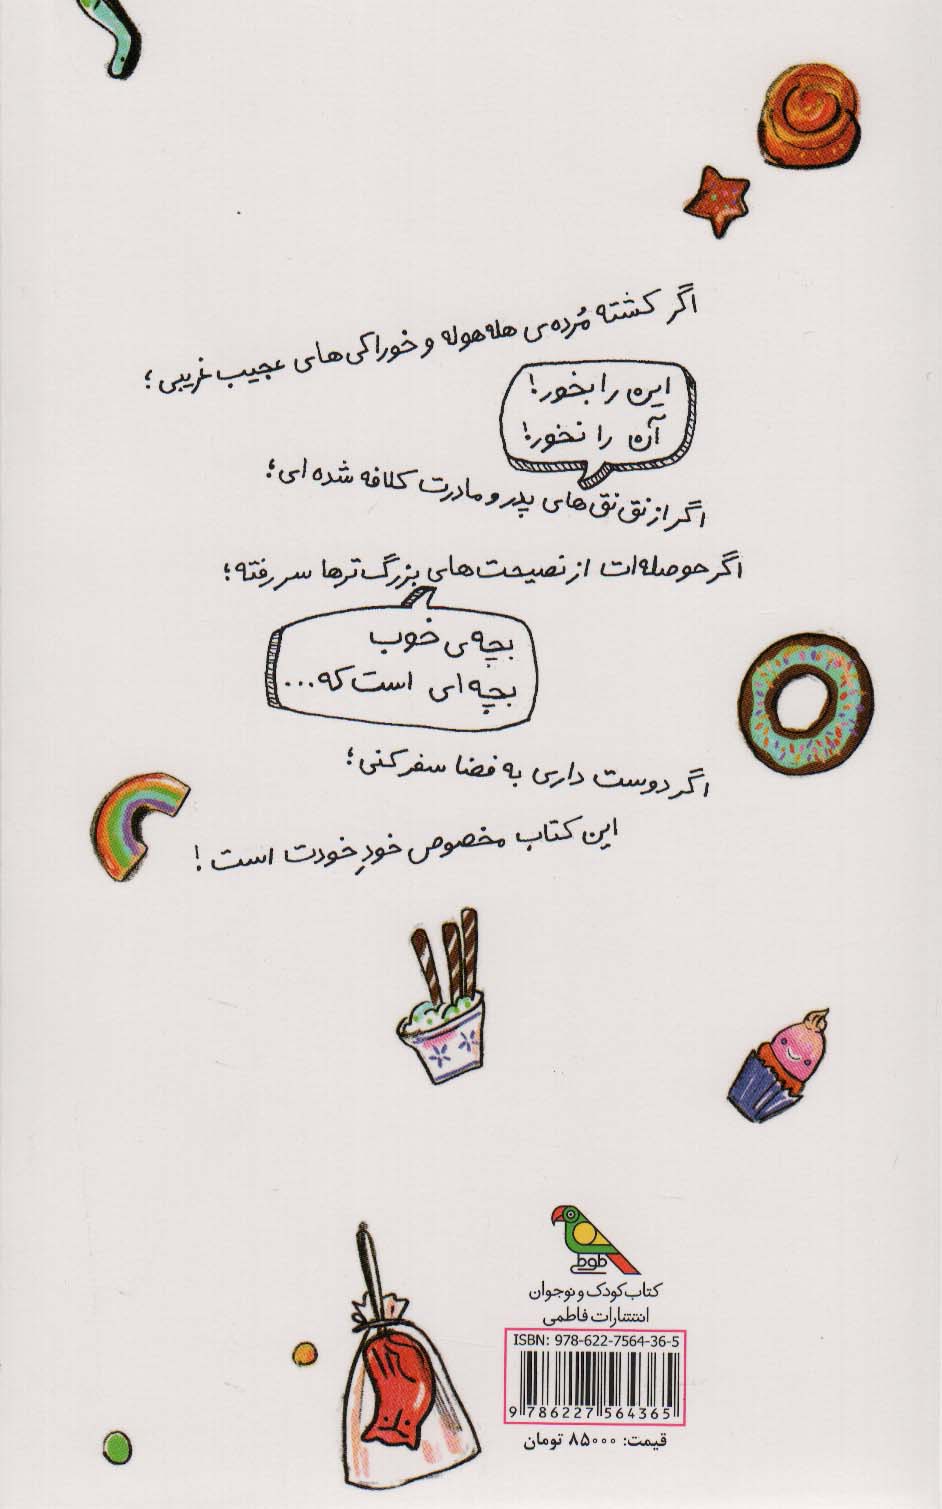 اگر کشته مُرده‌ی هله‌هوله و خوراکی‌های عجیب غریبی؛
این را بخور!
آن را نخور!
اگر از نق نق‌های پدر و مادرت کلافه شده‌ای؛
اگر حوصله‌ات از نصیحت‌های بزرگ‌ترها سر رفته؛
بچه‌ی خوب
بچه‌ای است که...
اگر دوست داری به فضا سفر کنی؛
این کتاب مخصوص خودِ خودت است!
طوطی
کتاب کودک و نوجوان
انتشارات فاطمی
ISBN: 978-622-7564-36-5
9 786227 564365
قیمت: ۸۵۰۰۰ تومان